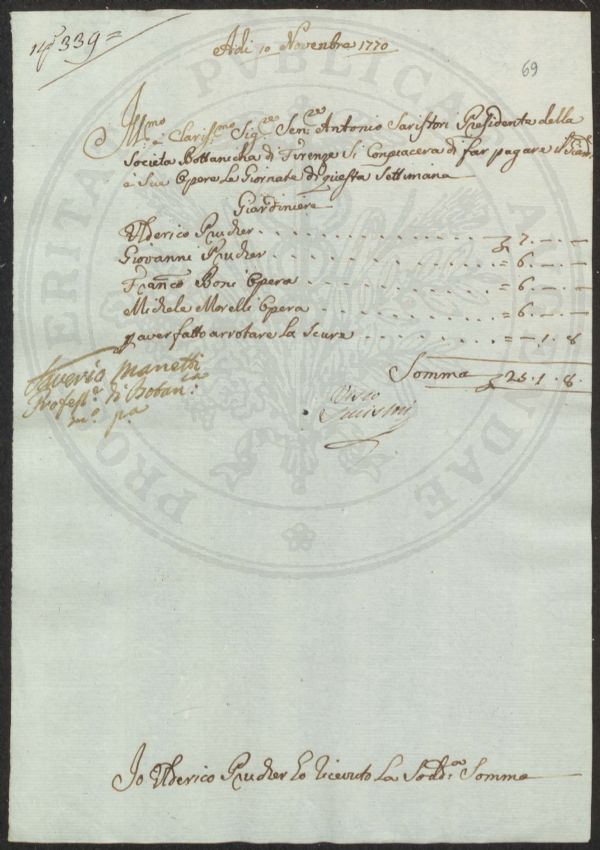 N° 339=
Adi 10 Novenbre 1770
69
Ill:mo
e Clariss:mo Sig:re Sen:re Antonio Saristori Presidente della
Societa Bottanicha di Firenze Si Conpiacera di far pagare
e Sue Opere Le Giornate di questa Settimana
Giardiniere
Ulderico Prucher . . . . . . . . . . . . . 7. — —
Giovanni Prucher . . . . . . . . . . . . = 6. — —
Fran:co Boni Opera . . . . . . . . . . . = 6. — —
Michele Morelli Opera . . . . . . . . . = 6. — —
p aver fatto arrotare La Scure . . . . . . . = — 1. 8
Somma 25. 1. 8.
Saverio Manetti
Profess:r di Botan:ca
m:o p:a
Visto
Io Ulderico Prucher ho ricevuto La Sodd:a Somma
PROSPERITATI PUBLICAE AUGENDAE